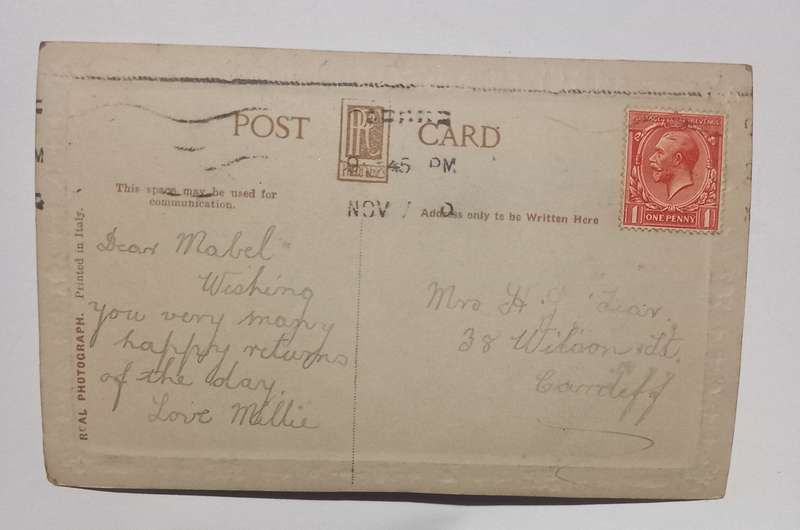 POST CARD
45 PM
NOV
This space may be used for
communication.
Address only to be Written Here
REAL PHOTOGRAPH. Printed in Italy.
Dear Mabel
Wishing
you very many
happy returns
of the day.
Love Millie
Mrs H. J.
38 Wilson St.
Cardiff
POSTAGE REVENUE
1 ONE PENNY 1